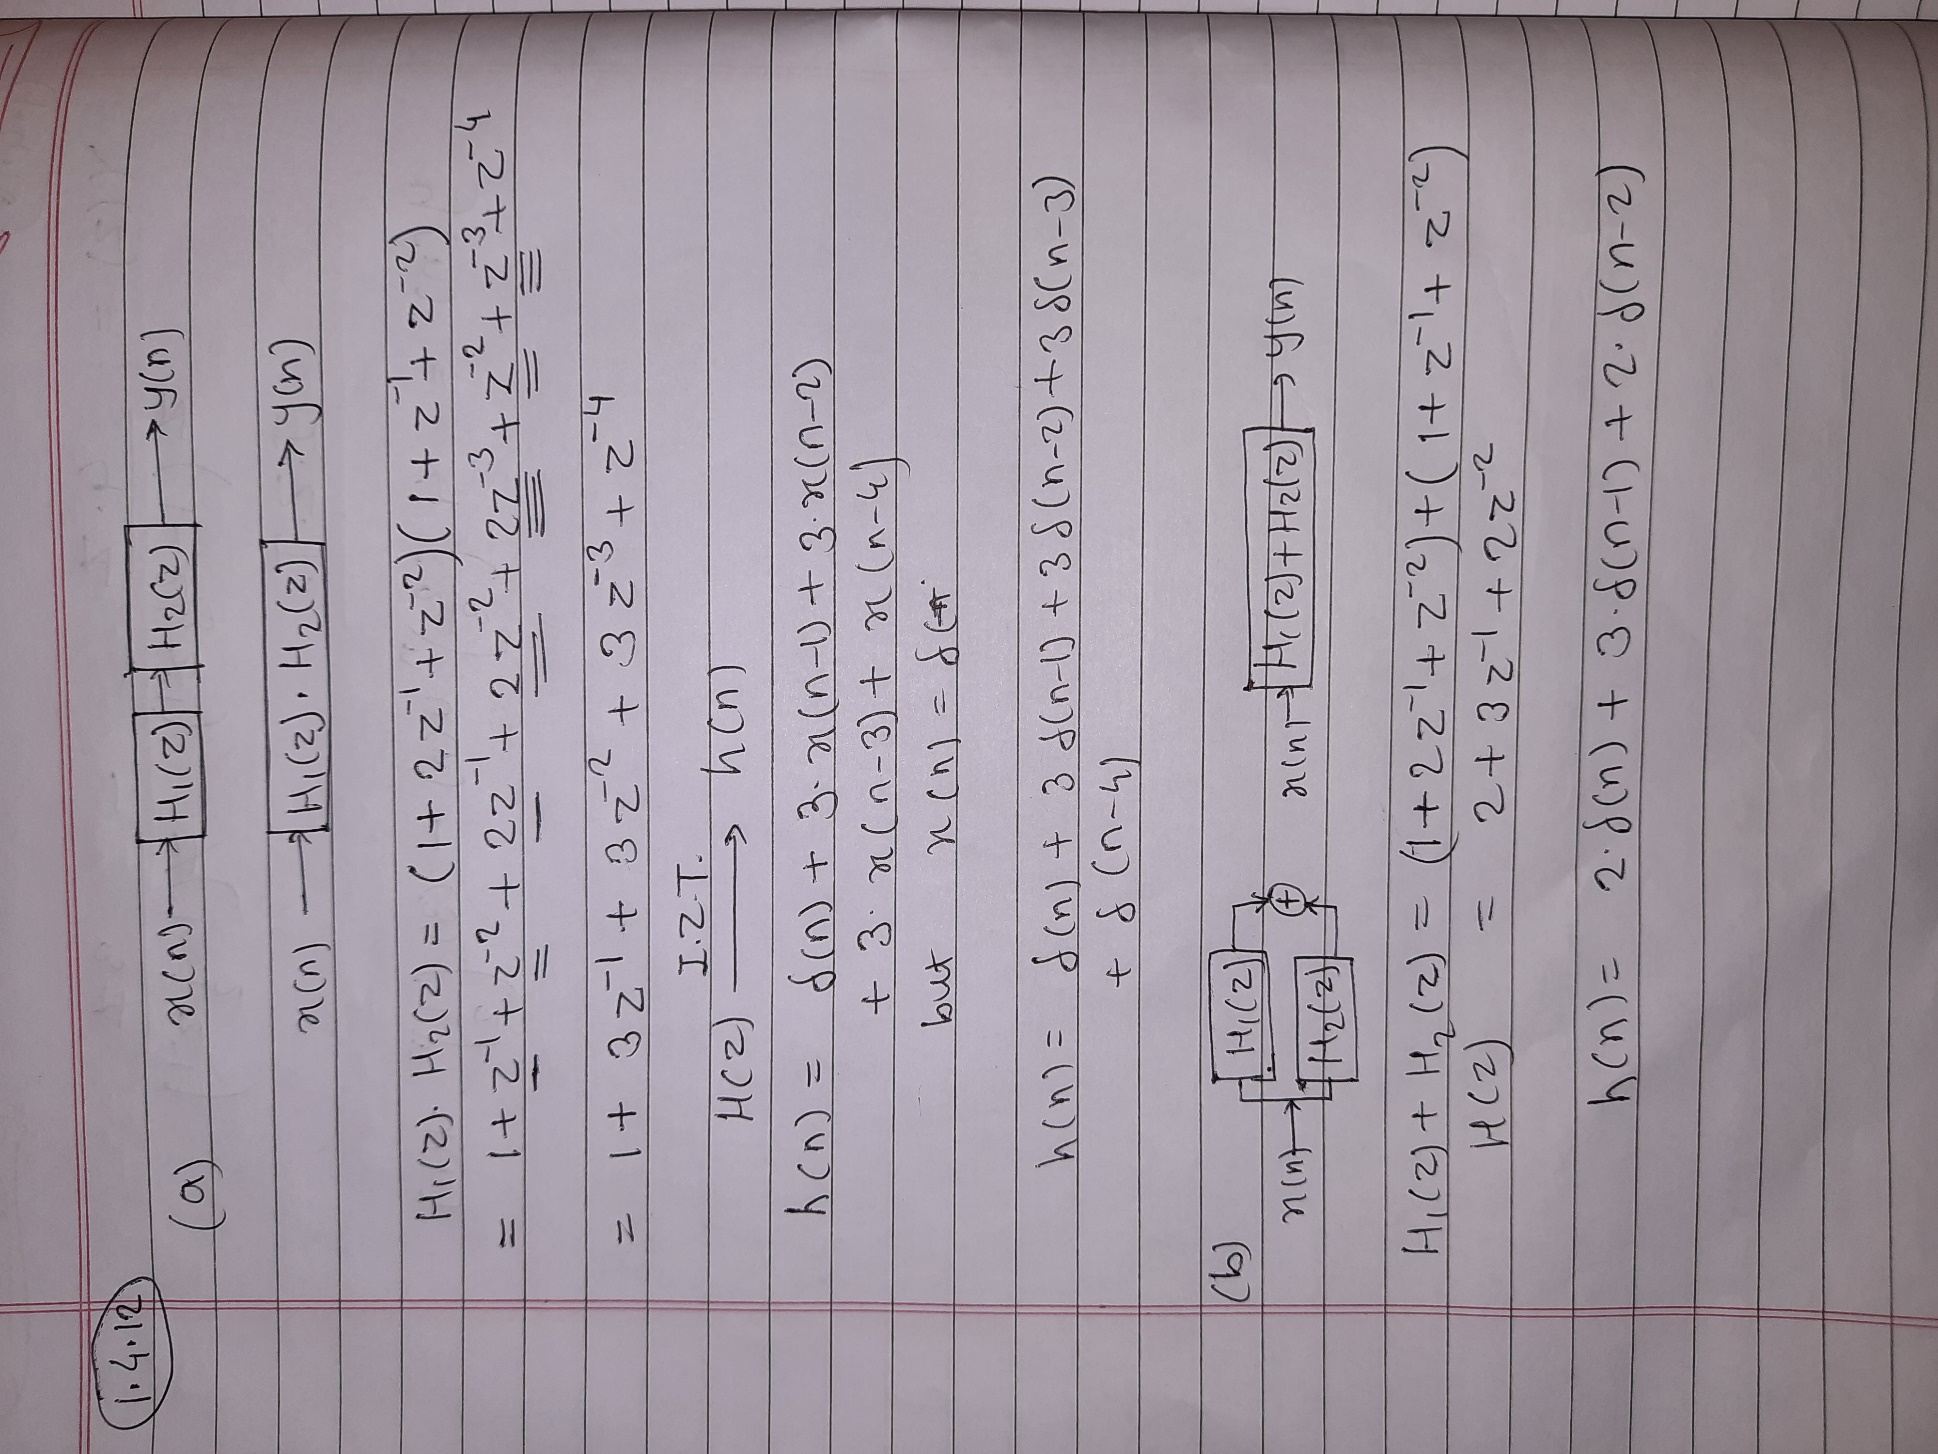 1.4.12
(a) x(n) → H₁(z) → H₂(z) → y(n)
x(n) → H₁(z) · H₂(z) → y(n)
H₁(z) · H₂(z) = (1 + 2z⁻¹ + z⁻²)(1 + z⁻¹ + z⁻²)
= 1 + z⁻¹ + z⁻² + 2z⁻¹ + 2z⁻² + 2z⁻³ + z⁻² + z⁻³ + z⁻⁴
= 1 + 3z⁻¹ + 3z⁻² + 3z⁻³ + z⁻⁴
I.Z.T.
H(z) → h(n)
h(n) = δ(n) + 3·x(n-1) + 3·x(n-2)
+ 3·x(n-3) + x(n-4)
but x(n) = δ(n
h(n) = δ(n) + 3 δ(n-1) + 3 δ(n-2) + 3 δ(n-3)
+ δ(n-4)
(b) x(n) → H₁(z) H₂(z) + x(n) → H₁(z) + H₂(z) → y(n)
H₁(z) + H₂(z) = (1 + 2z⁻¹ + z⁻²) + (1 + z⁻¹ + z⁻²)
H(z) = 2 + 3z⁻¹ + 2z⁻²
h(n) = 2·δ(n) + 3·δ(n-1) + 2·δ(n-2)